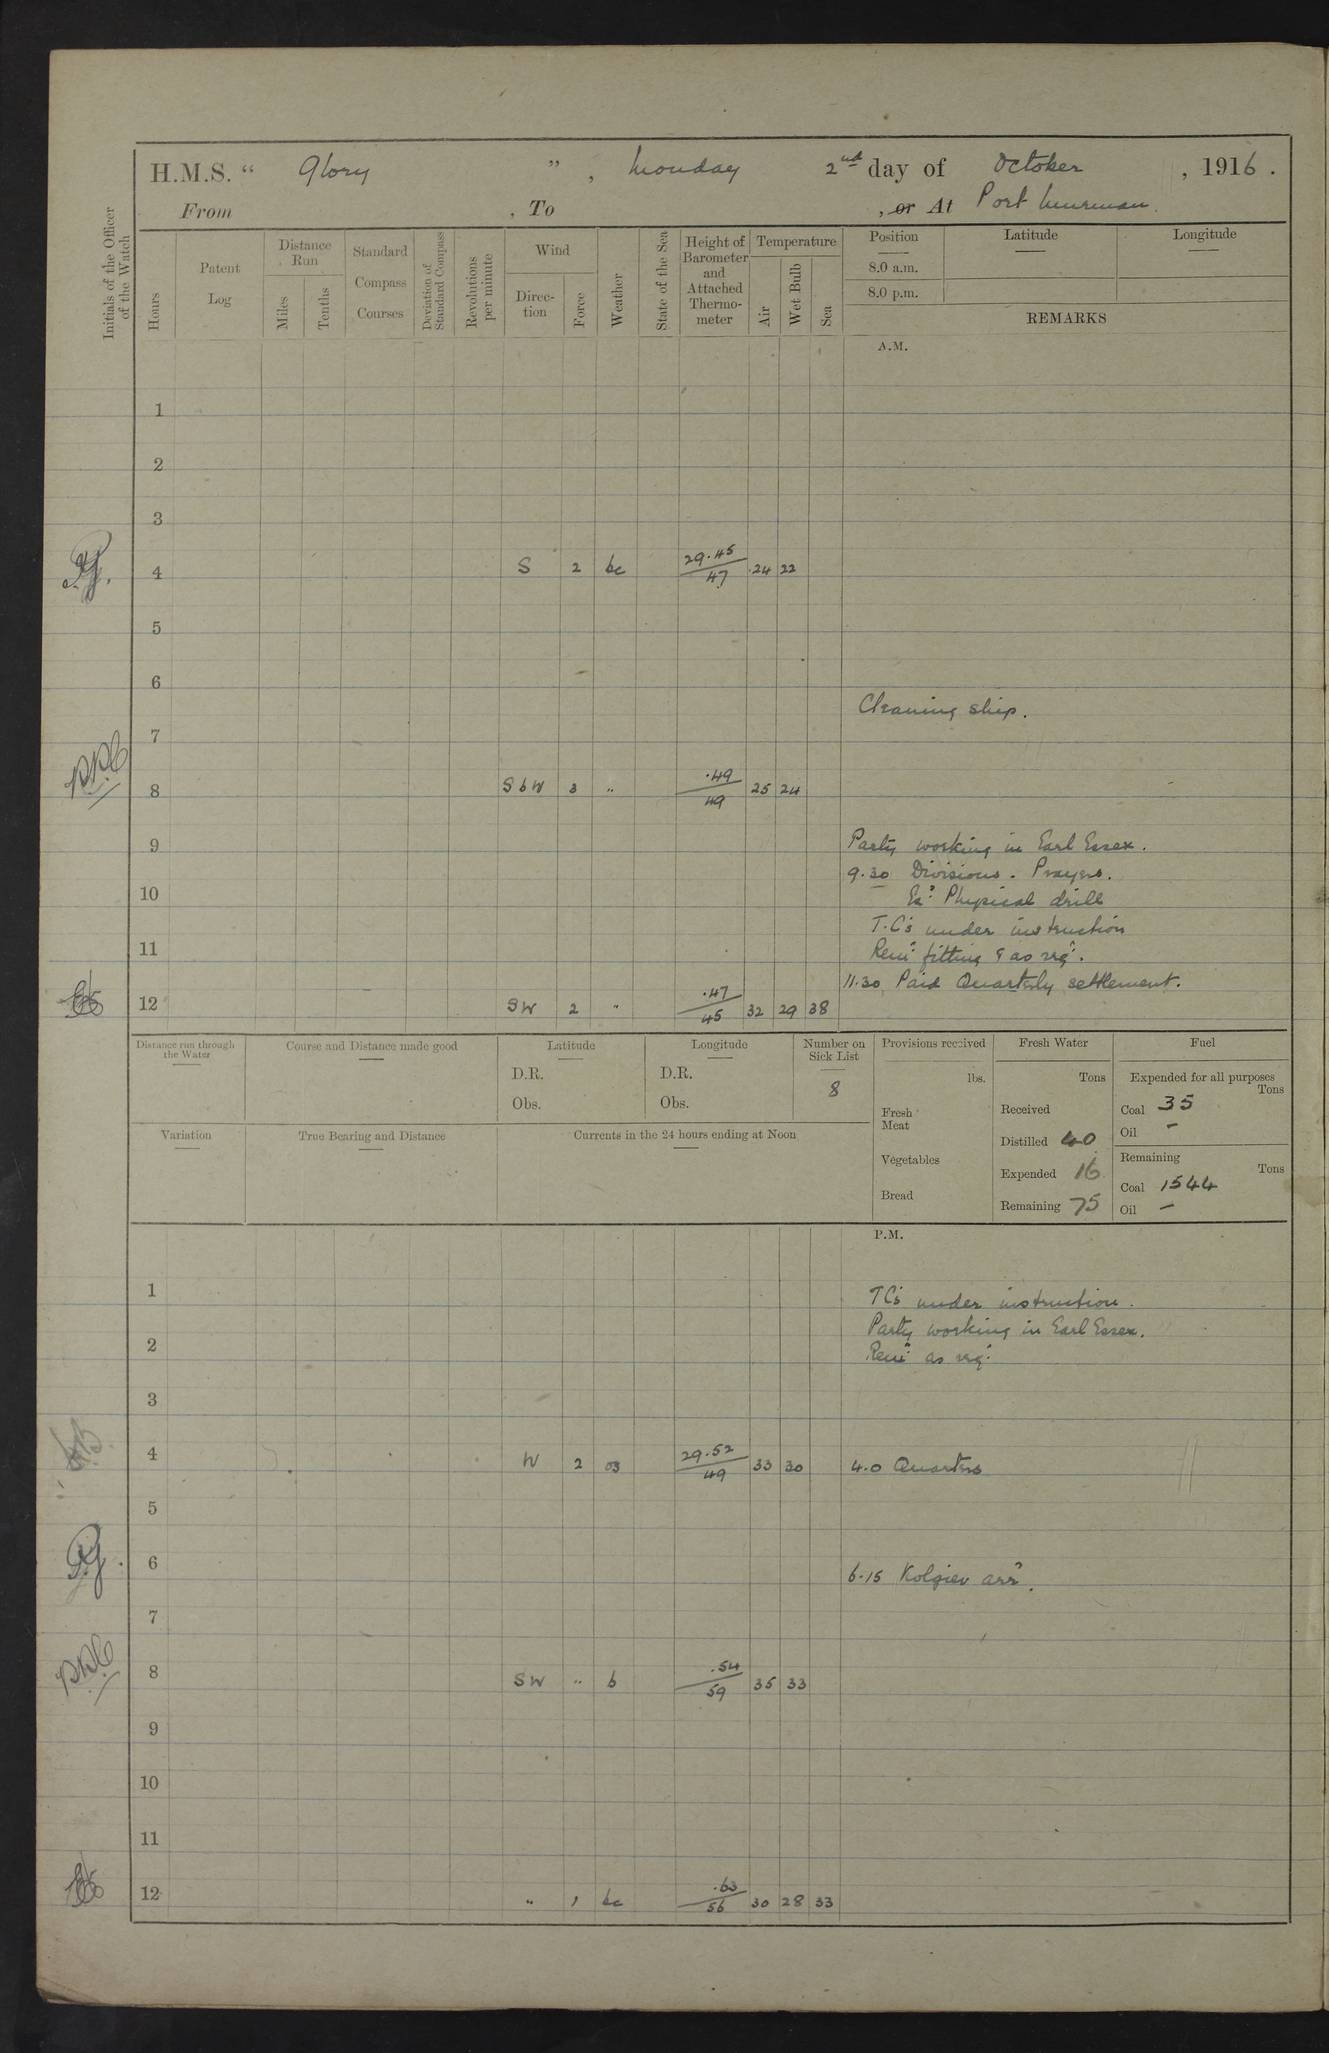 H.M.S. “ Glory ” , Monday 2nd day of October , 1916 .
From , To , or At Port Murman .
Initials of the Officer of the Watch
Hours
Patent Log
Distance Run
Miles
Tenths
Standard Compass Courses
Deviation of Standard Compass
Revolutions per minute
Wind
Direc-tion
Force
Weather
State of the Sea
Height of Barometer and Attached Thermo-meter
Temperature
Air
Wet Bulb
Sea
Position
8.0 a.m.
8.0 p.m.
Latitude
Longitude
REMARKS
A.M.
1
2
3
4 S 2 bc 29.45 / 47 24 22
5
6
Cleaning ship.
7
8 S b W 3 " .49 / 49 25 24
9 Party working in Earl Essex.
9.30 Divisions. Prayers.
10 Ex: Physical drill
T.C's under instruction
11 Remr fitting & as reqd.
11.30 Paid Quarterly settlement.
12 SW 2 " .47 / 45 32 29 38
Distance run through the Water
Course and Distance made good
Latitude
D.R.
Obs.
Longitude
D.R.
Obs.
Number on Sick List
8
Provisions received
lbs.
Fresh Meat
Vegetables
Bread
Fresh Water
Tons
Received
Distilled 40
Expended 16
Remaining 75
Fuel
Expended for all purposes
Tons
Coal 35
Oil –
Remaining
Tons
Coal 1544
Oil –
Variation
True Bearing and Distance
Currents in the 24 hours ending at Noon
P.M.
1 TCs under instruction.
Party working in Earl Essex.
2 Remr as reqd.
3
4 W 2 os 29.52 / 49 33 30 4.0 Quarters
5
6 6.15 Kolgiev arrd.
7
8 SW " b .54 / 59 35 33
9
10
11
12 " 1 bc .63 / 56 30 28 33